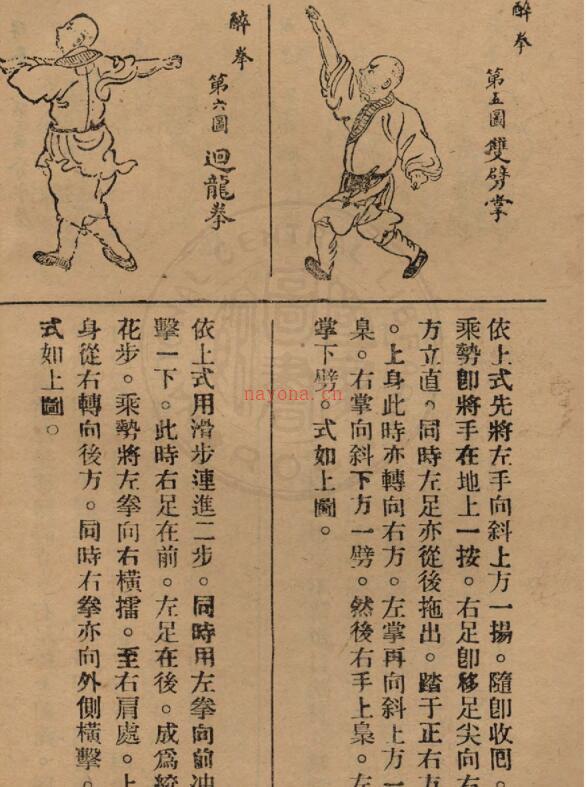 醉拳
第五圖 雙劈掌
依上式先將左手向斜上方一揚。隨卽收囘。
乘勢卽將手在地上一按。右足卽移足尖向右
方立直。同時左足亦從後拖出。踏于正右方
。上身此時亦轉向右方。左掌再向斜上方一
梟。右掌向斜下方一劈。然後右手上梟。左
掌下劈。式如上圖。
醉拳
第六圖 迴龍拳
依上式用滑步連進二步。同時用左拳向前冲
擊一下。此時右足在前。左足在後。成爲絞
花步。乘勢將左拳向右橫擂。至右肩處。上
身從右轉向後方。同時右拳亦向外側橫擊。
式如上圖。
nayona.cn